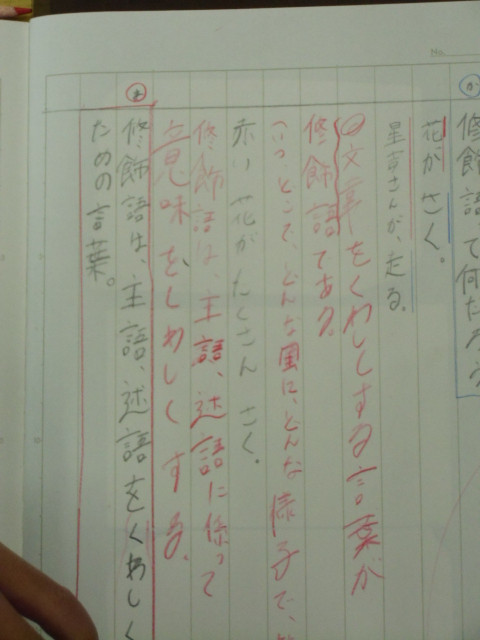 No.
か
修飾語って何だろう
花がさく。
星さんが、走る。
文章をくわしくする言葉が
修飾語である。
いつ、どこで、どんな風に、どんな様子で、
赤い花がたくさんさく。
修飾語は、主語、述語に係って
意味をくわしくする。
ま
修飾語は、主語、述語をくわしく
ための言葉。